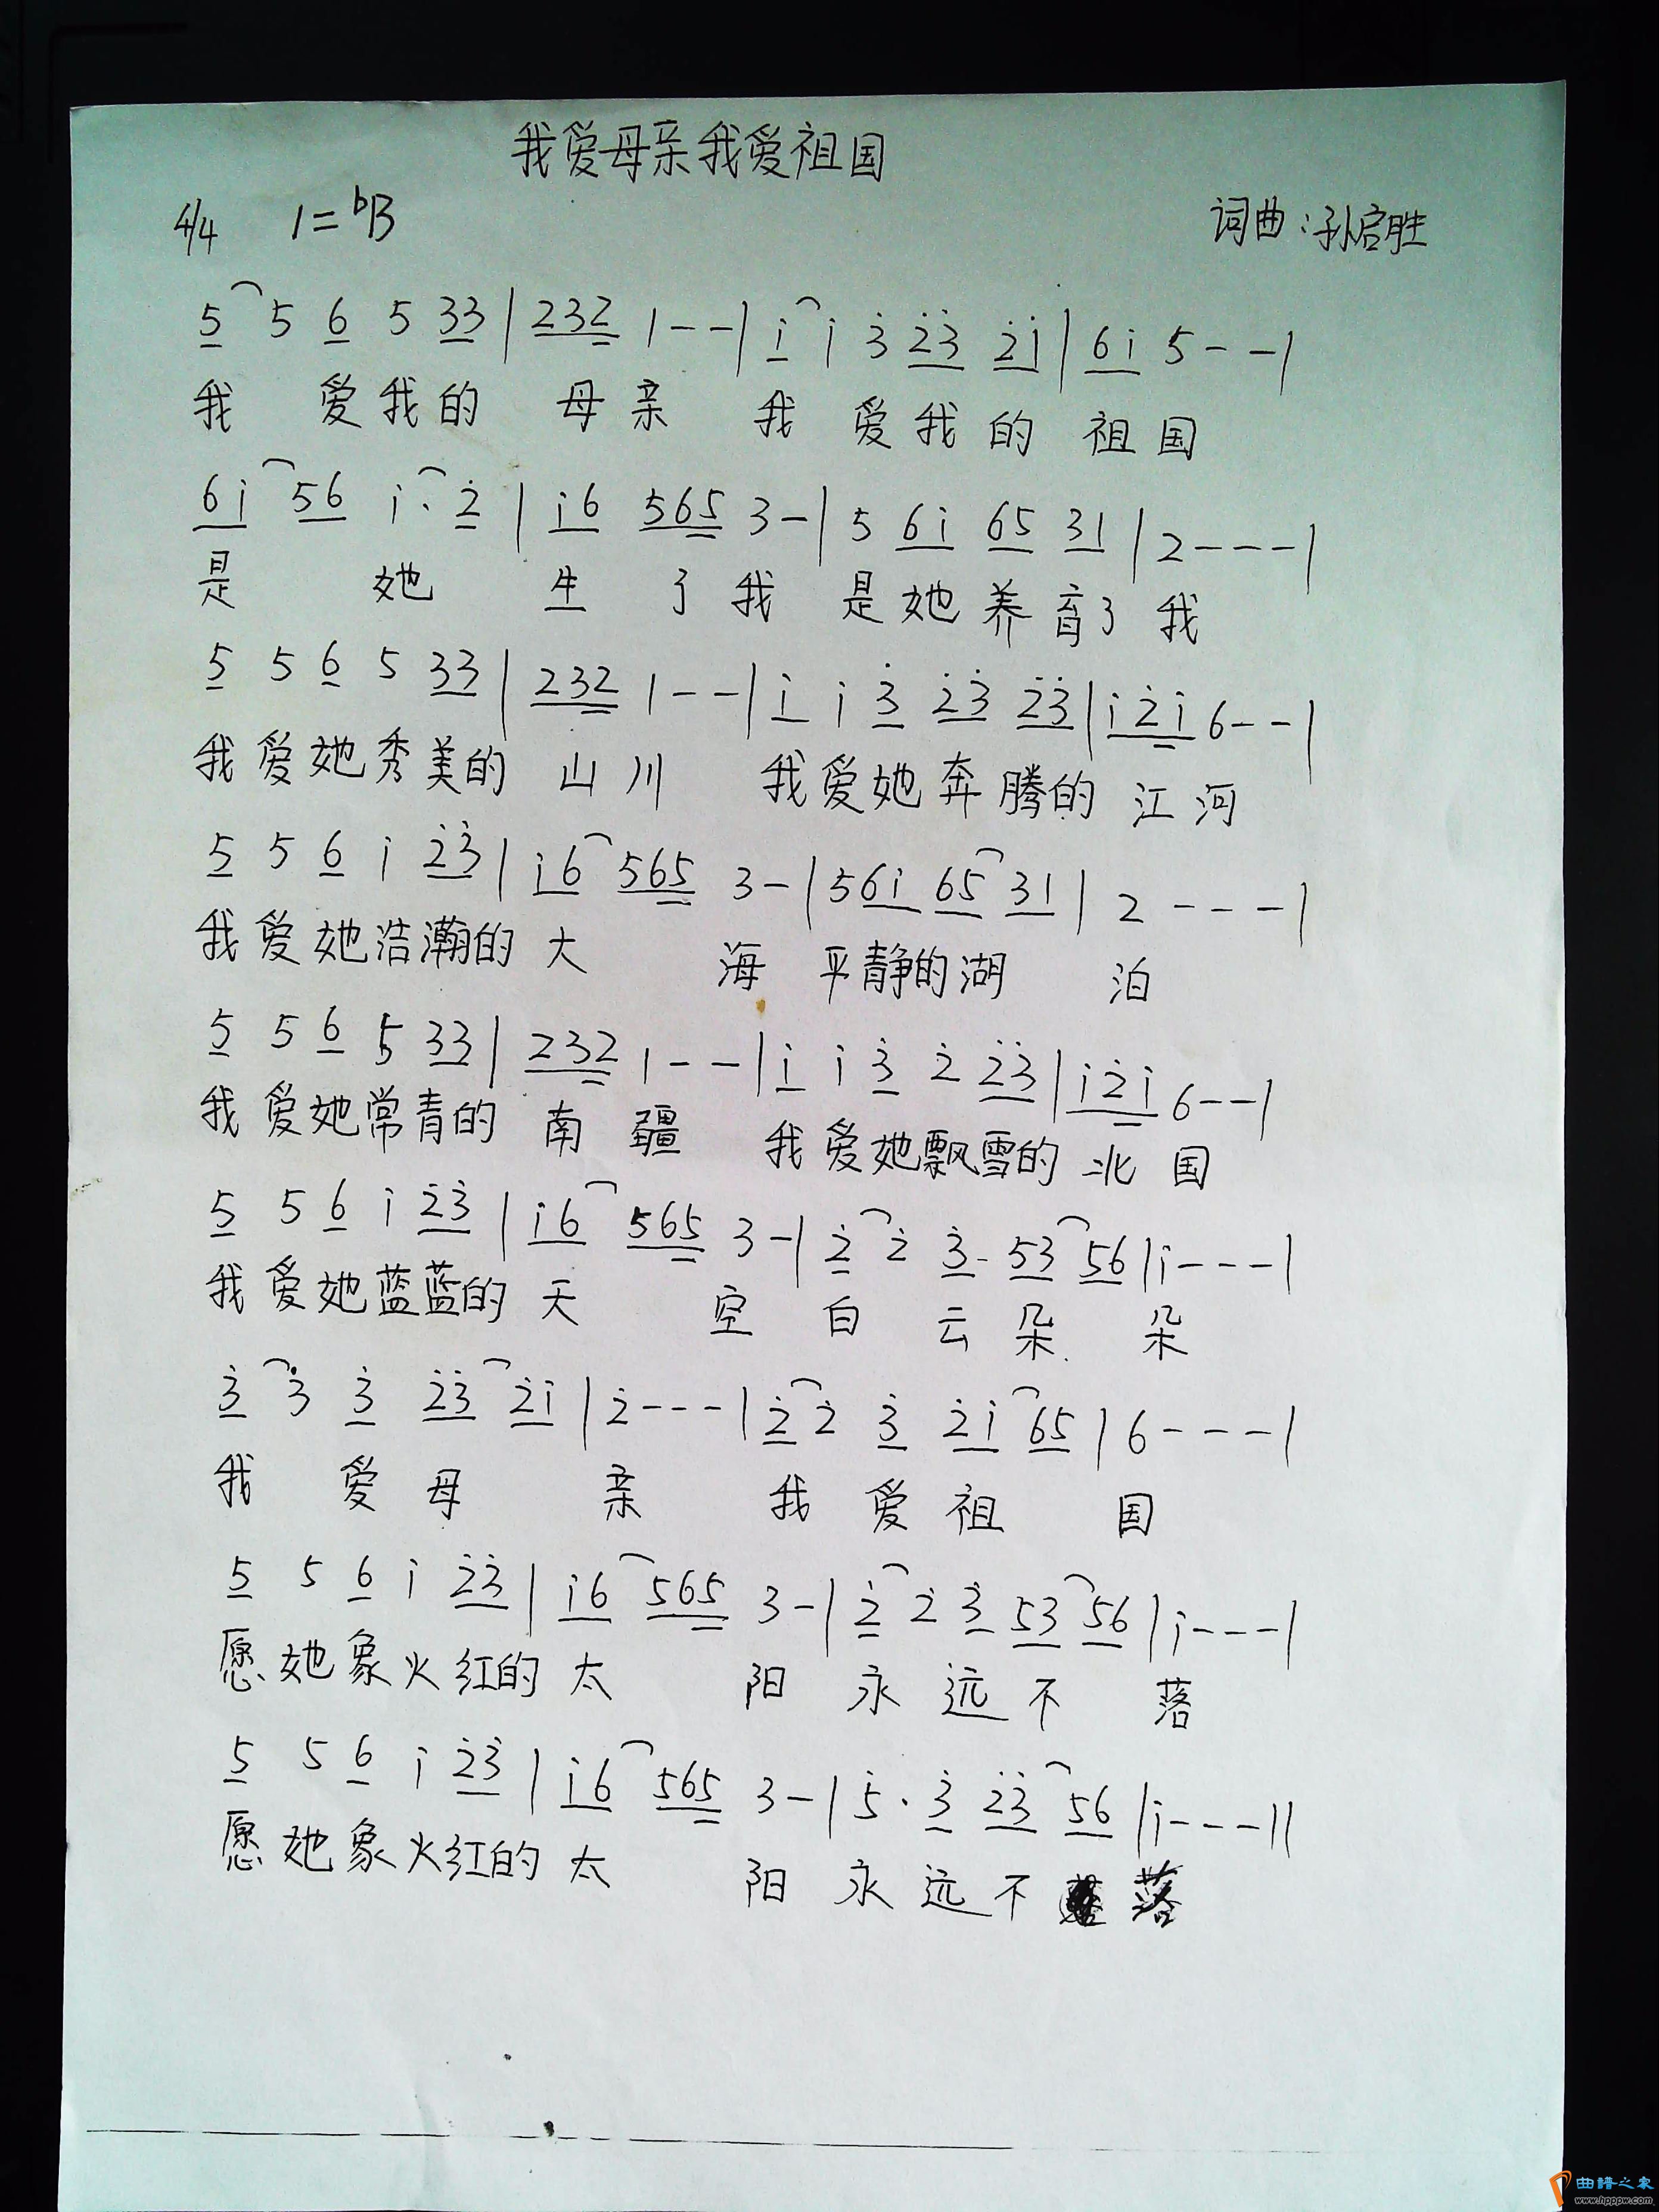 我爱母亲我爱祖国
4/4 1=ᵇB 词曲:孙启胜
5 5 6 5 33 | 232 1 - - | i i 3 23 2i | 6i 5 - - |
我 爱我的 母亲 我 爱我的 祖国
6i 56 i· 2 | i6 565 3 - | 5 6i 65 31 | 2 - - - |
是 她 生 了我 是她养育了我
5 5 6 5 33 | 232 1 - - | i i 3 23 23 | i2i 6 - - |
我爱她秀美的 山川 我爱她奔腾的 江河
5 5 6 i 23 | i6 565 3 - | 5 6i 65 31 | 2 - - - |
我爱她浩瀚的 大 海 平静的湖 泊
5 5 6 5 33 | 232 1 - - | i i 3 2 23 | i2i 6 - - |
我爱她常青的 南疆 我爱她飘雪的 北国
5 5 6 i 23 | i6 565 3 - | 2 2 3 53 56 | i - - - |
我爱她蓝蓝的 天 空 白 云朵 朵
3 3 3 23 2i | 2 - - - | 2 2 3 2i 65 | 6 - - - |
我 爱母 亲 我 爱祖 国
5 5 6 i 23 | i6 565 3 - | 2 2 3 53 56 | i - - - |
愿她象火红的 太 阳 永远不 落
5 5 6 i 23 | i6 565 3 - | 5· 3 23 56 | i - - - ||
愿她象火红的 太 阳 永远不 落
曲谱之家
www.hppw.com